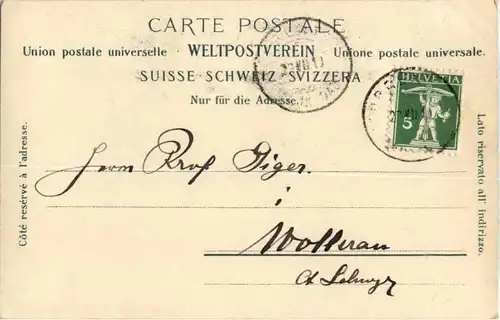 CARTE POSTALE
Union postale universelle · WELTPOSTVEREIN · Unione postale universale.
SUISSE · SCHWEIZ · SVIZZERA
Nur für die Adresse.
HELVETIA
5
Côté reservé à l'adresse.
Lato riservato all' indirizzo.
Herrn Prof Giger.
i
Wollerau
Ct Schwyz